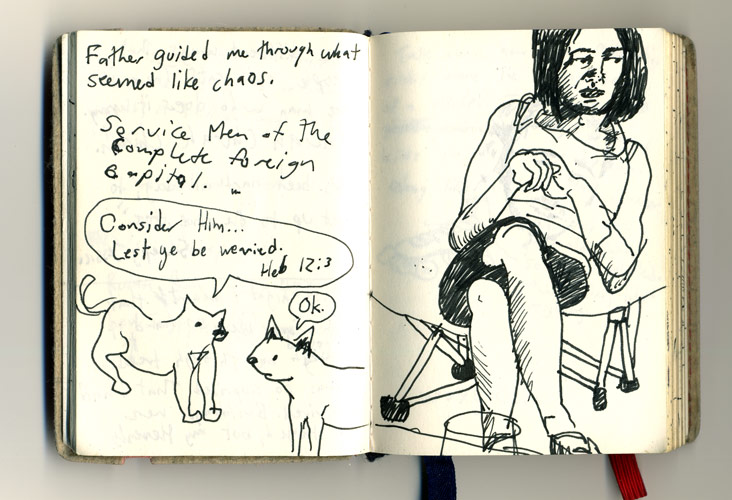 Father guided me through what
seemed like chaos.
Service Men of the
Complete foreign
capital.
Consider Him...
Lest ye be wearied.
Heb 12:3
Ok.